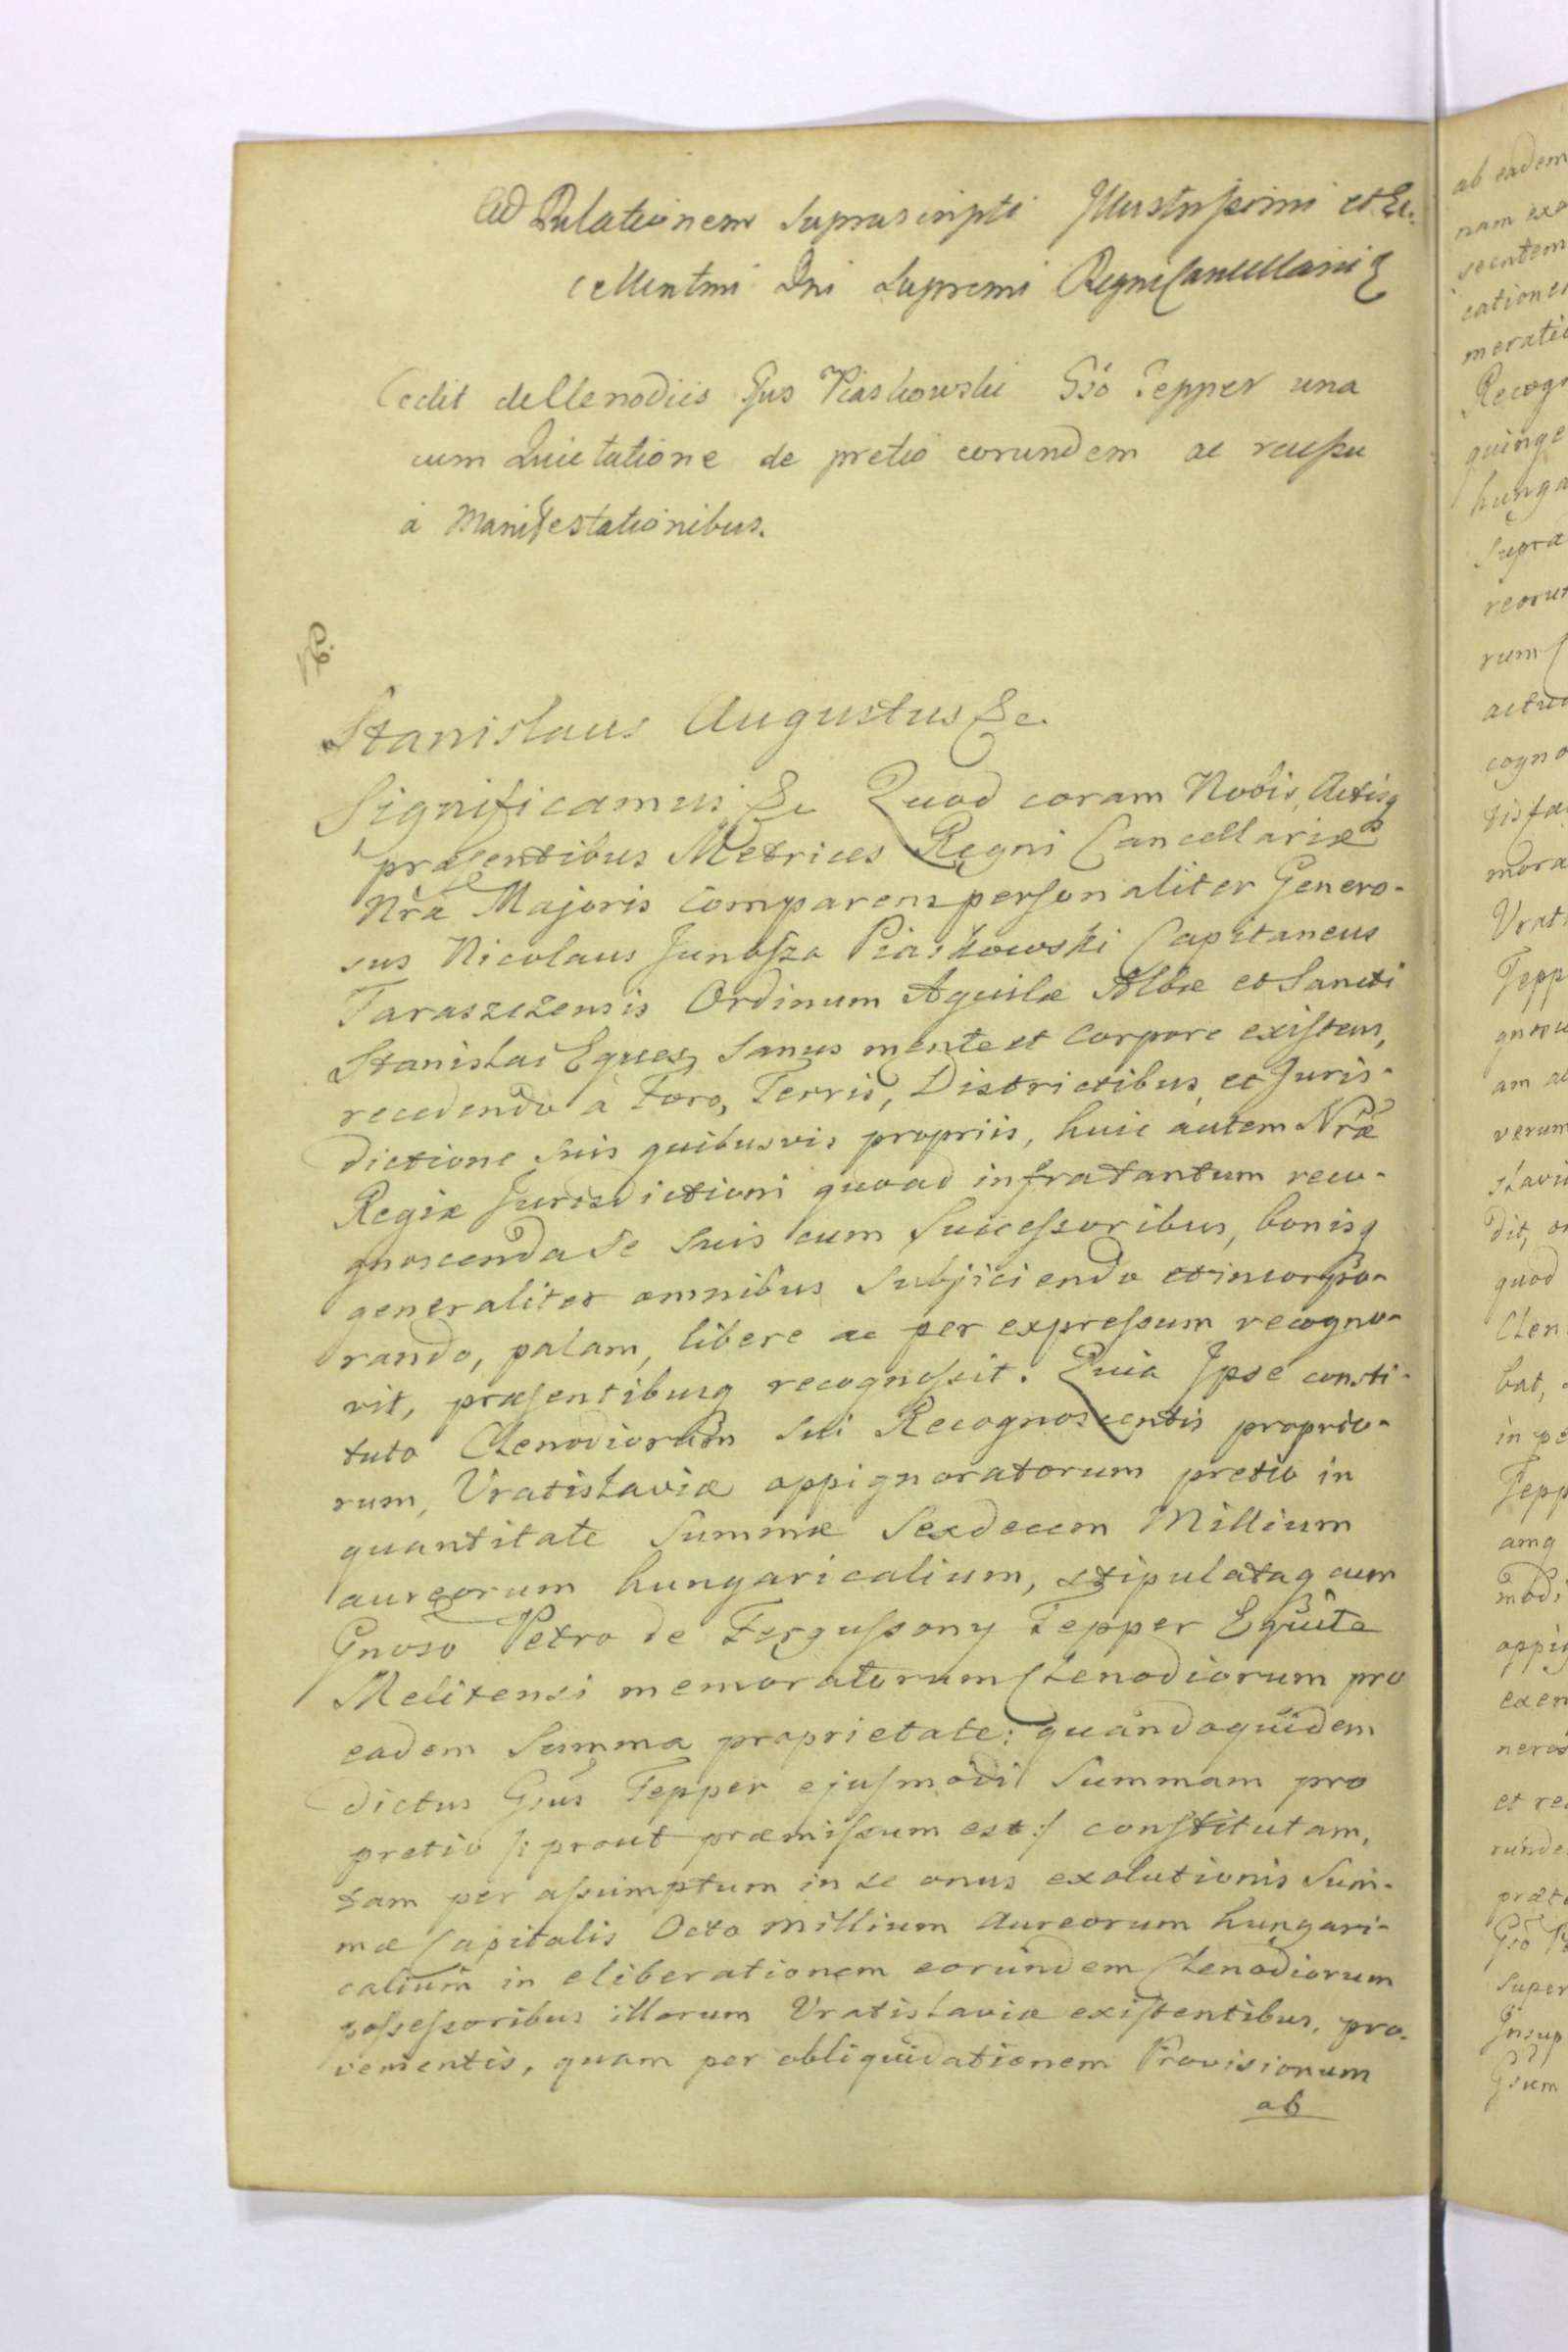 Ad Relationem suprascripti Illustrissimi et Ex-
cellentmi Dni Supremi Regni Cancellarii
Cedit de Clenodiis Gsus Piaskowski Gso Tepper una
cum Quietatione de pretio eorundem ac recessu
à Manifestationibus.
Stanislaus Augustus &c.
Significamus &c Quod coram Nobis, Actisq
præsentibus Metrices Regni Cancellariæ
Nræ Majoris Comparens personaliter Genero-
sus Nicolaus Junosza Piaskowski Capitaneus
Taraszczensis Ordinum Aquilæ Albæ et Sancti
Stanislai Eques, sanus mente et Corpore existens,
recedendo à Foro, Terris, Districtibus, et Juris-
dictione suis quibusvis propriis, huic autem Nræ
Regiæ Jurisdictioni quoad infra tantum reco-
gnoscenda se suis cum Successoribus, bonisq
generaliter omnibus subjiciendo et incorpo-
rando, palam, libere ac per expressum recogno-
vit, præsentibusq recognoscit. Quia Ipse consti-
tuto Clenodiorum sui Recognoscentis proprio-
rum, Vratislaviæ oppignoratorum pretio in
quantitate Summæ Sexdecem Millium
aureorum hungaricalium, stipulataq cum
Gnoso Petro de Fergussony Tepper Equite
Melitensi memoratorum Clenodiorum pro
eadem Summa proprietate: quandoquidem
dictus Gsus Tepper ejusmodi Summam pro
pretio /: prout præmissum est :/ constitutam,
tam per assumptum in se onus exolutionis Sum-
mæ Capitalis Octo Millium Aureorum hungari-
calium in eliberationem eorundem Clenodiorum
possessoribus illorum Vratislaviæ existentibus, pro-
venientis, quam per obliquidationem Provisionum
ab
ab eadem
nam
cationes
Recogn
quinge
hunga
Supra
reorum
rum
cogno
mora
Vrati
Tepp
am
verum
dit,
quod
Clen
bat,
in pe
Tepp
amq
oppig
et re
runde
Gso
Super
Insup
Gsum